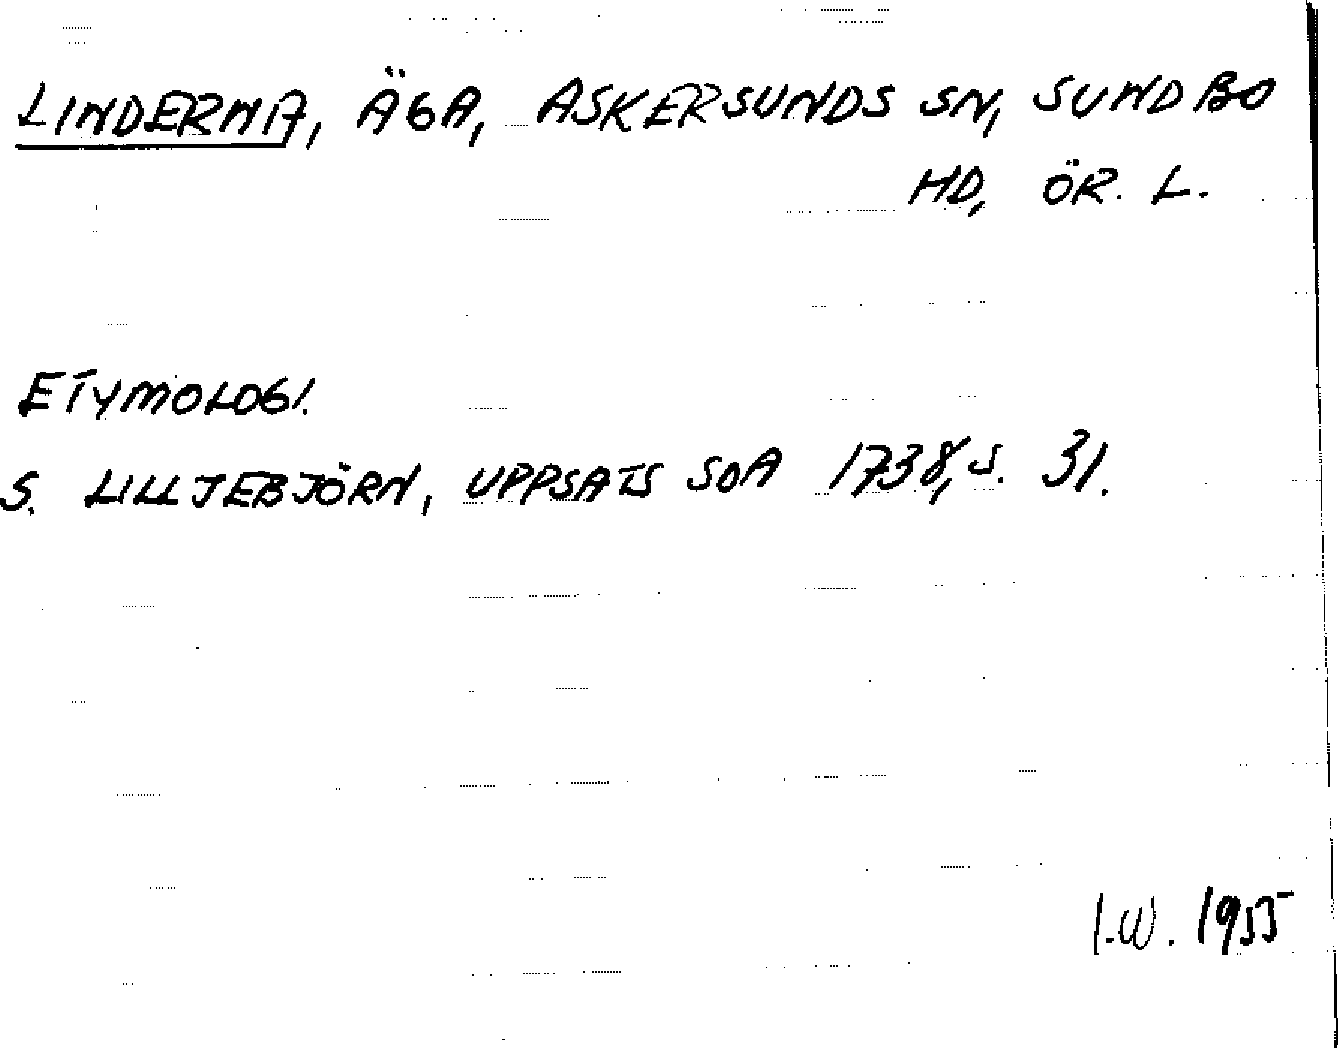 LINDERNA, ÄGA, ASKERSUNDS SN, SUNDBO
HD, ÖR. L.
ETYMOLOGI.
S. LILLJEBJÖRN, UPPSATS SOA 1738, S. 31.
I.W. 1955